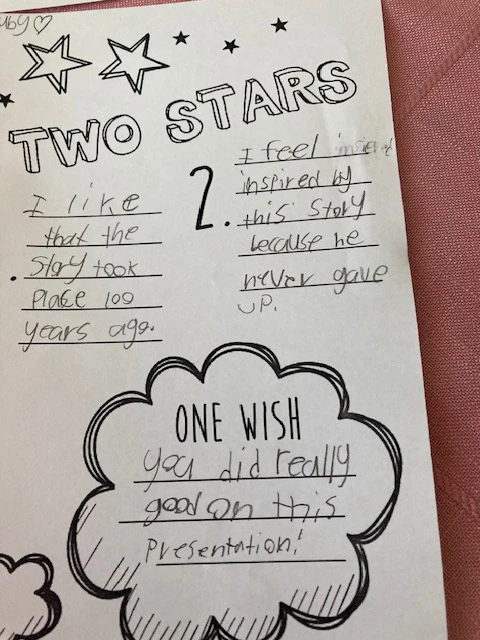 uby♡
TWO STARS
I like
that the
Story took
Place 100
years ago.
2.
I feel
inspired by
this Story
because he
never gave
UP.
ONE WISH
you did really
good on this
Presentation!